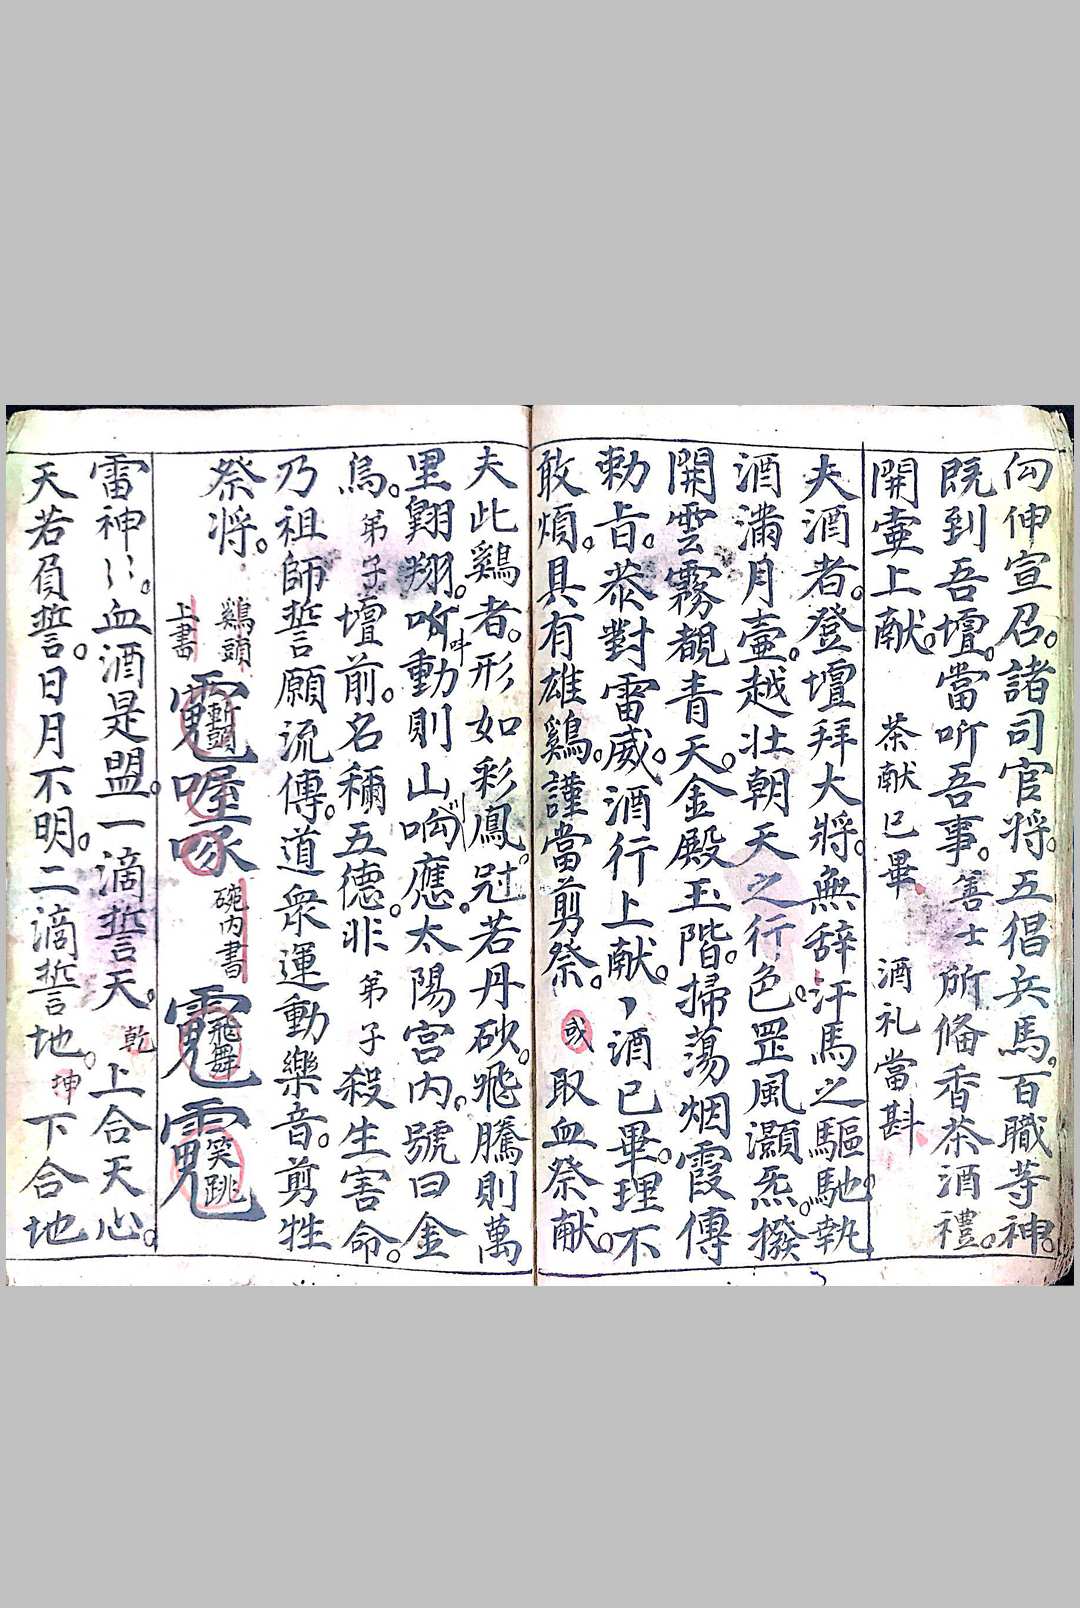 伸宣召。諸司官将。五猖兵馬。百職等神。
既到吾壇。當听吾事。善士所俻香茶酒禮。
開壷上献。茶献已畢 酒礼當斟
夫酒者。登壇拜大將。無辞汗馬之驅馳。執
酒满月壷。越壮朝天之行色。罡風灝炁。撥
開雲霧覩青天。金殿玉階。掃蕩烟霞傳
勅旨。恭對雷威。酒行上献。酒已畢。理不
敢煩。具有雄鷄。謹當剪祭。或取血祭献。
夫此鷄者。形如彩鳳。冠若丹砂。飛騰則萬
里翱翔。呌動則山应太陽宫内。號曰金
烏。弟子壇前。名稱五德。非弟子殺生害命。
乃祖師誓願流傳。道衆運動樂音。剪牲
祭将。
鷄頭
上書
斬頭
喔
啄
碗内書
飛舞
笑跳
雷神。血酒是盟。一滴誓天。乾上合天心。
天若負誓。日月不明。二滴誓地。坤下合地